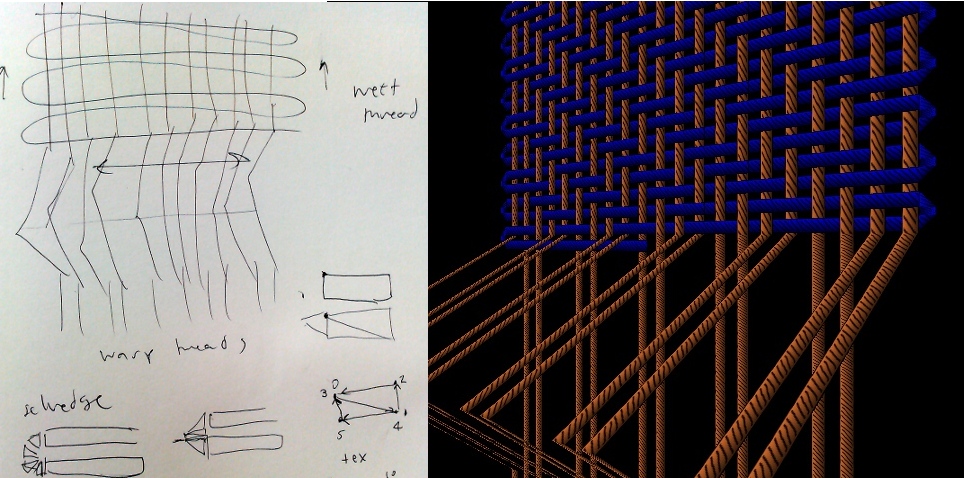 weft
thread
warp threads
selvedge
0
2
3
4
5
tex